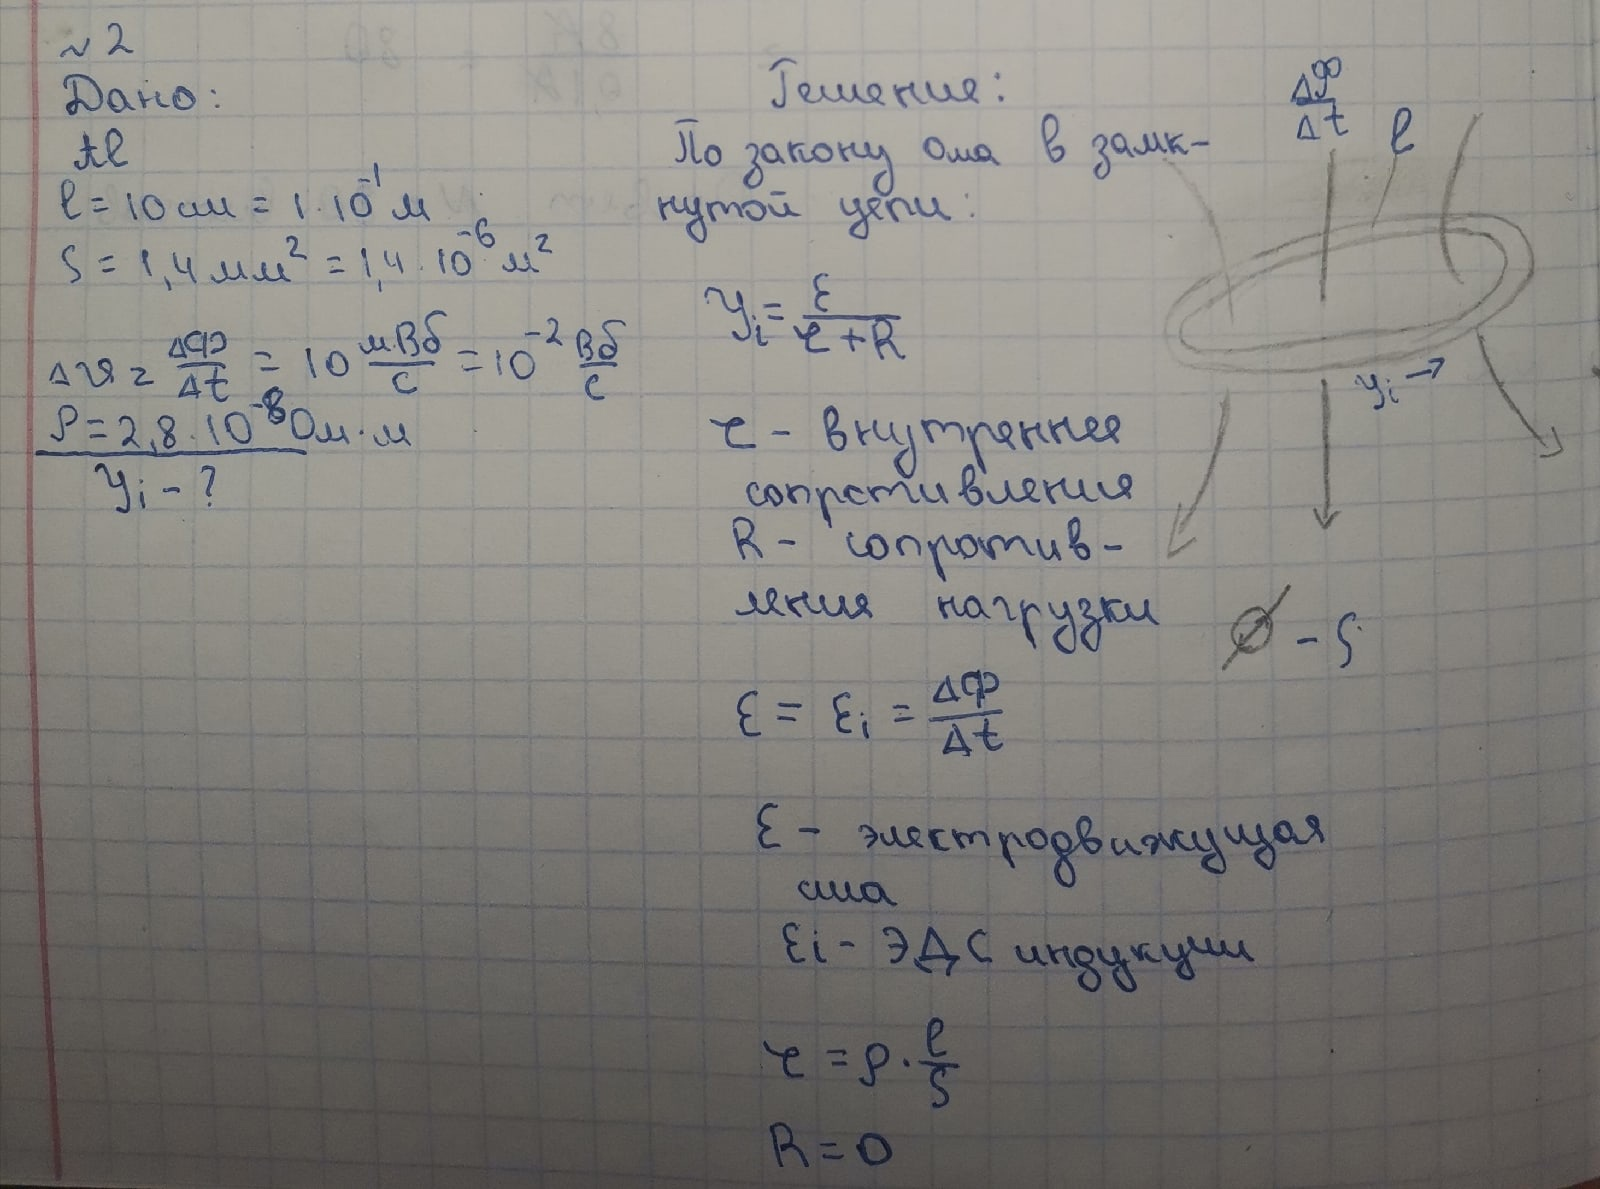 №2
Дано:
Al
l = 10 см = 1·10⁻¹ м
S = 1,4 мм² = 1,4·10⁻⁶ м²
Δυ = ΔΦ/Δt = 10 мВб/с = 10⁻² Вб/с
ρ = 2,8·10⁻⁸ Ом·м
Ii - ?
Решение:
По закону ома в замк-
нутой цепи:
Ii = ε/(r+R)
r - внутреннее
сопротивления
R - сопротив-
ления нагрузки
ε = εi = ΔΦ/Δt
ε - электродвижущая
сила
εi - ЭДС индукции
r = ρ · l/S
R = 0
ΔΦ/Δt
l
Ii →
- S